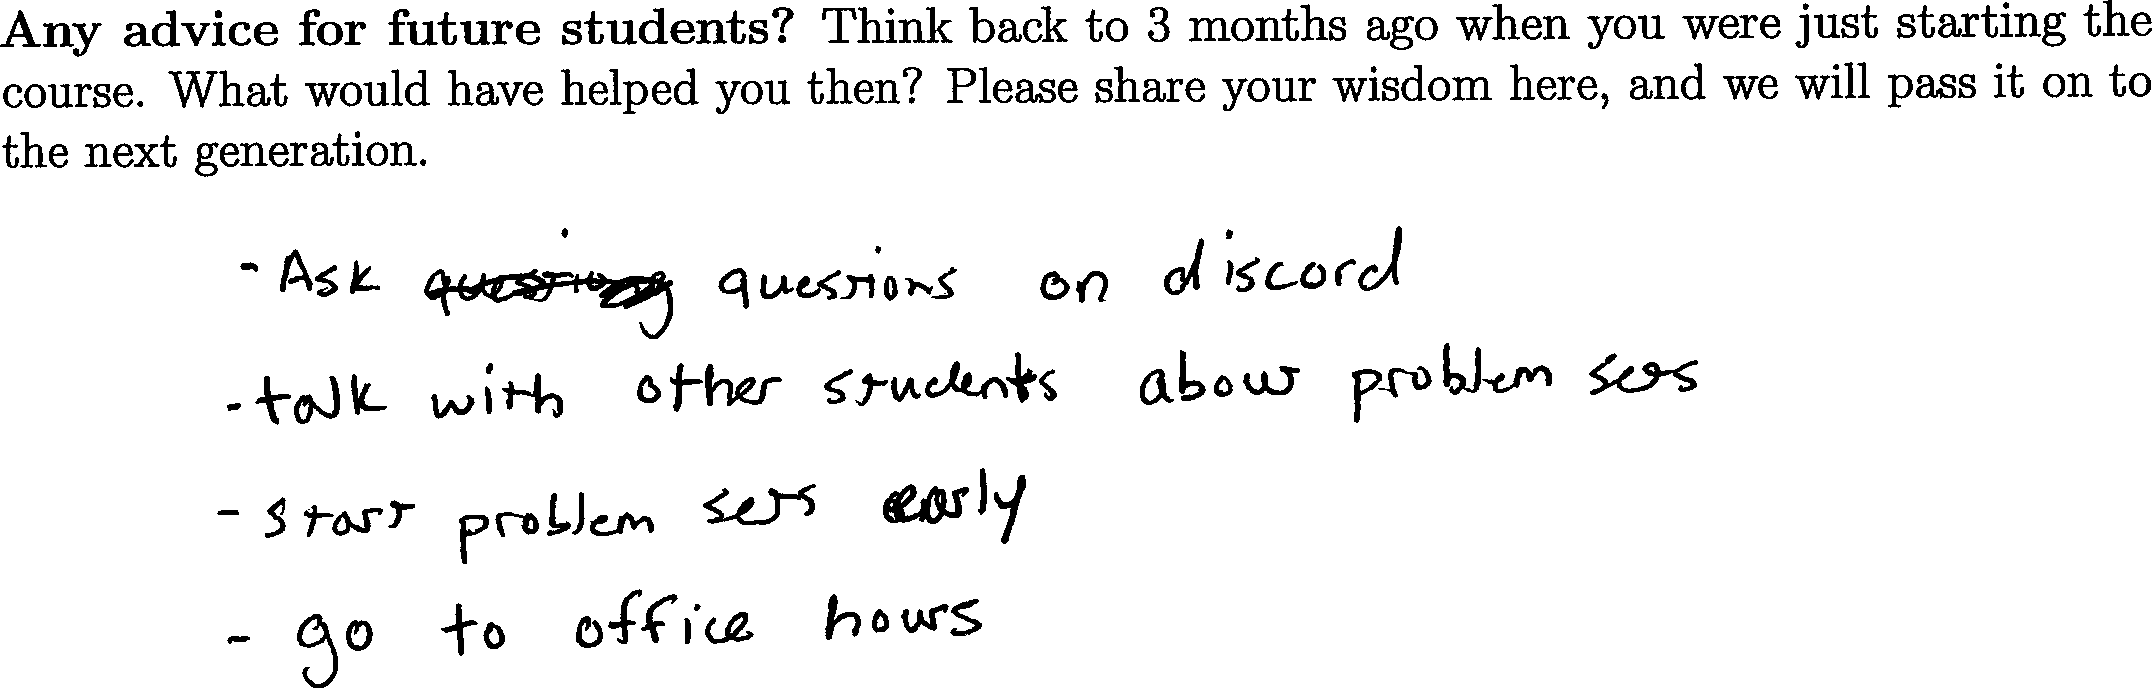 Any advice for future students? Think back to 3 months ago when you were just starting the
course. What would have helped you then? Please share your wisdom here, and we will pass it on to
the next generation.
- Ask questions on discord
- talk with other students about problem sets
- start problem sets early
- go to office hours